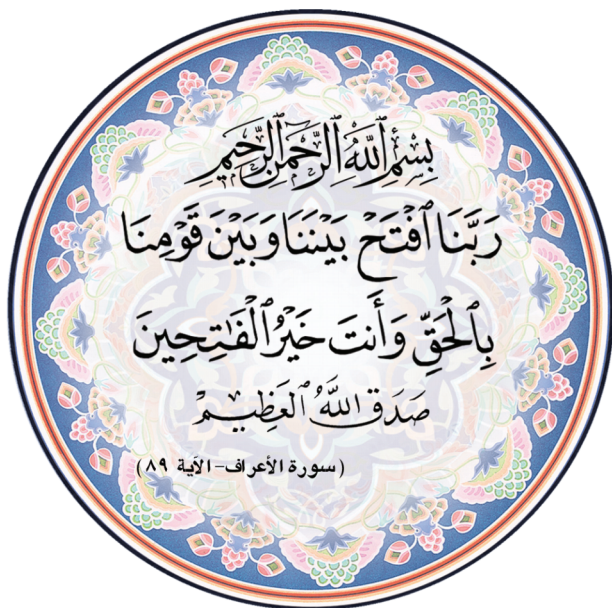 بِسْمِ ٱللَّهِ ٱلرَّحْمَٰنِ ٱلرَّحِيمِ
رَبَّنَا ٱفْتَحْ بَيْنَنَا وَبَيْنَ قَوْمِنَا
بِٱلْحَقِّ وَأَنتَ خَيْرُ ٱلْفَٰتِحِينَ
صَدَقَ اللَّهُ العَظِيمْ
(سورة الأعراف - الآية ٨٩)